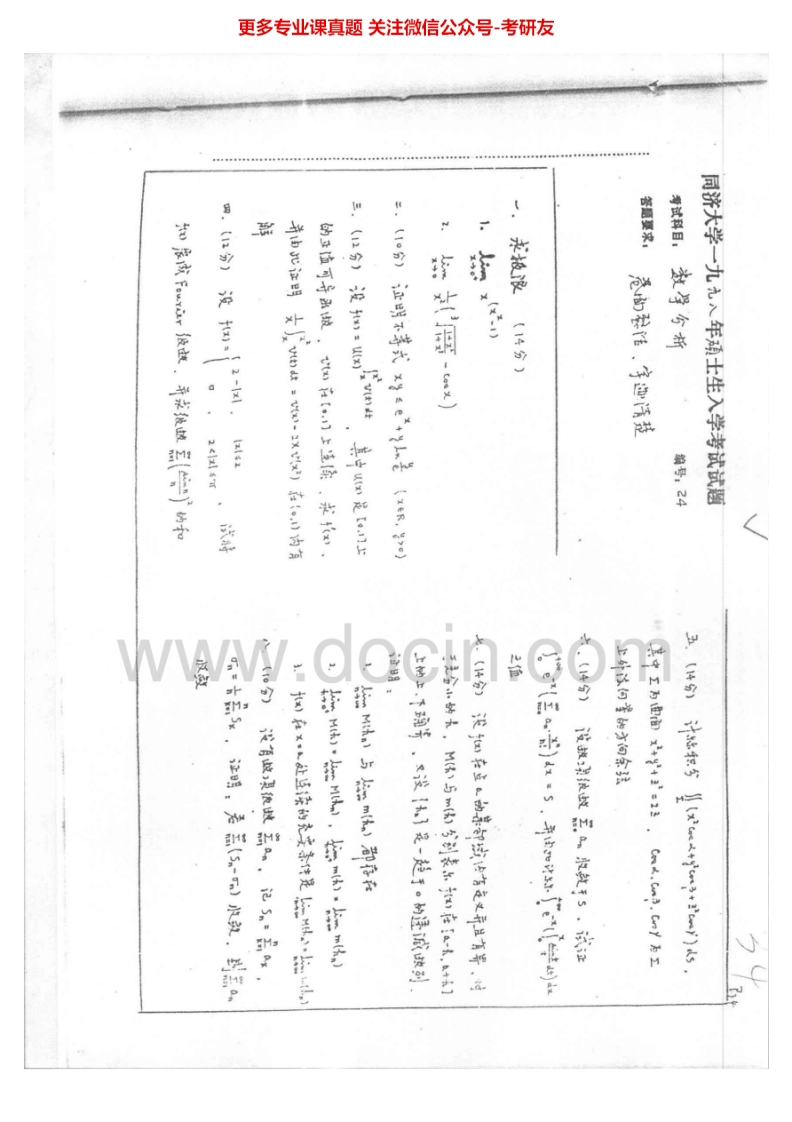 更多专业课真题 关注微信公众号-考研友
同济大学一九九八年硕士生入学考试试题
考试科目：数学分析 编号：24
答题要求：卷面整洁、字迹清楚
一、求极限（14分）
1. lim_{x→0⁺} x^(x²-1)
2. lim_{x→0} 1/x² (∛((1+x²)/(1+x²)) - cosx)
二、（10分）证明不等式 xy ≤ e^x + y ln y/e （x∈R, y>0）
三、（12分）设 f(x)=u(x)^{∫_x^{x²} v(t)dt}，其中 u(x) 是 [0,1] 上
的正值可导函数，v(x) 在 [0,1] 上连续，求 f'(x)，
并由此证明 1/x ∫_x^{x²} v(t)dt = v(x) - 2x v(x²) 在 (0,1) 内有
解
四、（12分）设 f(x)={ 2-|x|, |x|≤2 ; 0, 2<|x|≤π ，试将
f(x) 展成 Fourier 级数，并求级数 ∑_{n=1}^∞ (sin n/n)² 的和
五、（14分）计算积分 ∬_Σ (x²cosα+y²cosβ+z²cosγ)ds，
其中 Σ 为曲面 x²+y²+z²=2z，cosα,cosβ,cosγ 为 Σ
上外法向量的方向余弦
六、（14分）设数项级数 ∑_{n=0}^∞ a_n 收敛于 S，试证
∫_0^{+∞} e^{-x}(∑_{n=0}^∞ a_n·x^n/n!)dx = S，并由此计算 ∫_0^{+∞} e^{-x}(∫_0^x sin t/t dt)dx
之值
七、（14分）设 f(x) 在点 a 的某邻域内有定义并且有界，对
充分小的 h，M(h) 与 m(h) 分别表示 f(x) 在 [a-h, a+h]
上的上、下确界，又设 {h_n} 是一趋于 0 的递减数列，
证明：
1. lim_{n→∞} M(h_n) 与 lim_{n→∞} m(h_n) 都存在
2. lim_{h→0⁺} M(h) = lim_{n→∞} M(h_n), lim_{h→0⁺} m(h) = lim_{n→∞} m(h_n)
3. f(x) 在 x=a 处连续的充要条件是 lim_{n→∞} M(h_n) = lim_{n→∞} m(h_n)
八、（10分）设有数项级数 ∑_{n=1}^∞ a_n，记 S_n = ∑_{k=1}^n a_k，
σ_n = 1/n ∑_{k=1}^n S_k，证明：若 ∑_{n=1}^∞ (S_n-σ_n) 收敛，则 ∑_{n=1}^∞ a_n
收敛
34
www.docin.com